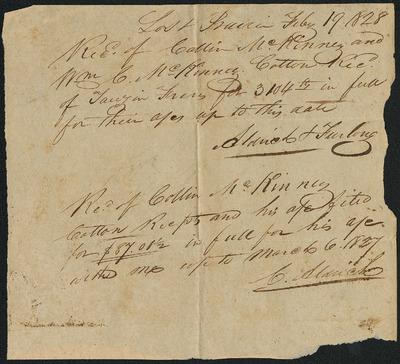 Lost Prairie Feby 19 1828
Recd. of Collin McKinney and
Wm C. McKinney Cotton Rec.
of for 3104 in full
for their a/cs up to this date
Aldrich & Furlong
Recd of Collin McKinney
Cotton Recpts and his a/c
for $87.08½ in full for his a/c
with me up to March 6. 1827
C. Aldrich